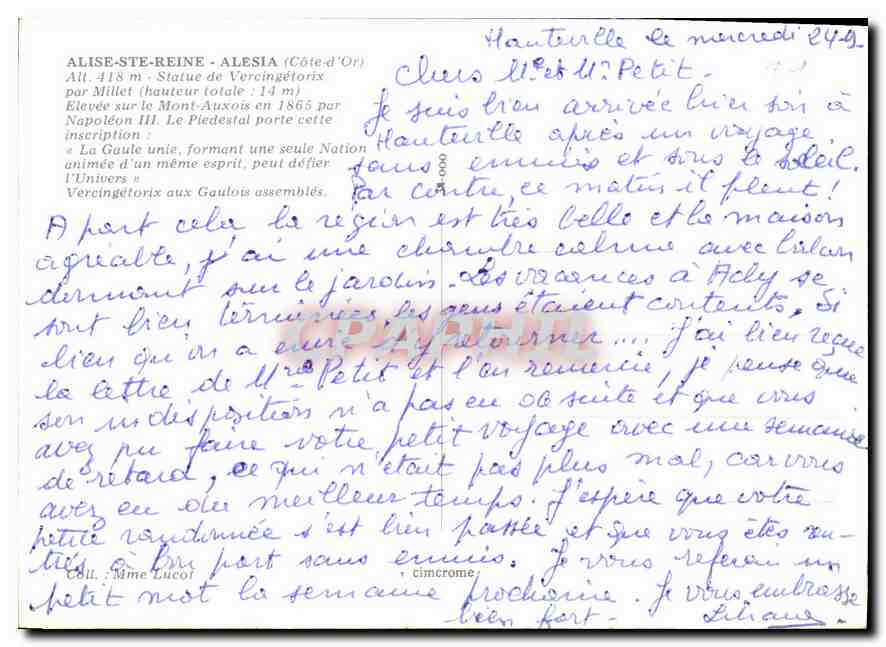 Hauteville le mercredi 24-9-
ALISE-STE-REINE - ALESIA (Côte-d'Or)
Alt. 418 m - Statue de Vercingétorix
par Millet (hauteur totale : 14 m)
Elevée sur le Mont-Auxois en 1865 par
Napoléon III. Le Piedestal porte cette
inscription :
« La Gaule unie, formant une seule Nation
animée d'un même esprit, peut défier
l'Univers »
Vercingétorix aux Gaulois assemblés.
Chers Me et Mr Petit.
Je suis bien arrivée hier soir à
Hauteville après un voyage
sans ennuis et sous le soleil.
Par contre, ce matin il pleut!
A part cela la région est très belle et la maison
agréable, j'ai une chambre calme avec balcon
donnant sur le jardin. Les vacances à Ady se
sont bien terminées les gens étaient contents. Si
bien qu'on a envie d'y retourner.... j'ai bien reçue
la lettre de Mme Petit et l'en remercie, je pense que
son indisposition n'a pas eu de suite et que vous
avez pu faire votre petit voyage avec une semaine
de retard, ce qui n'était pas plus mal, car vous
avez eu du meilleur temps. J'espère que votre
petite randonnée s'est bien passée et que vous êtes ren-
trés à bon port sans ennuis. Je vous referai un
petit mot la semaine prochaine. Je vous embrasse
bien fort - Liliane.
Coll. : Mme Lucot
cimcrome
CPAPHIL